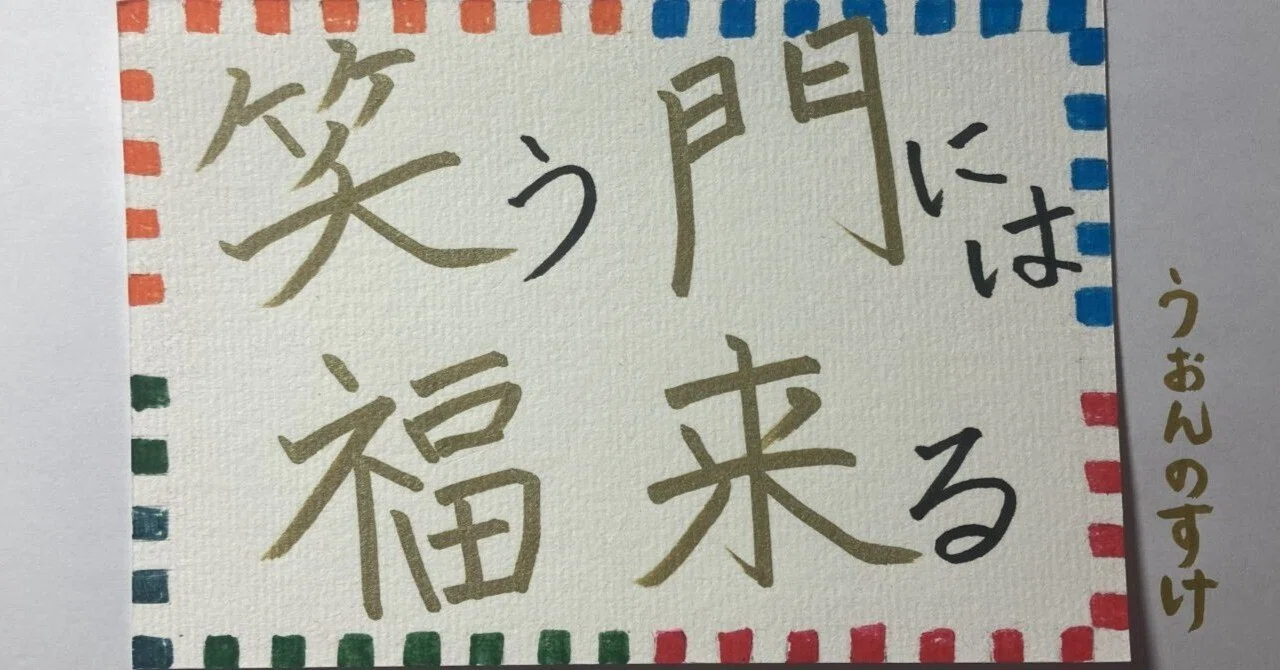 笑う門には
福来る
うぉんのすけ